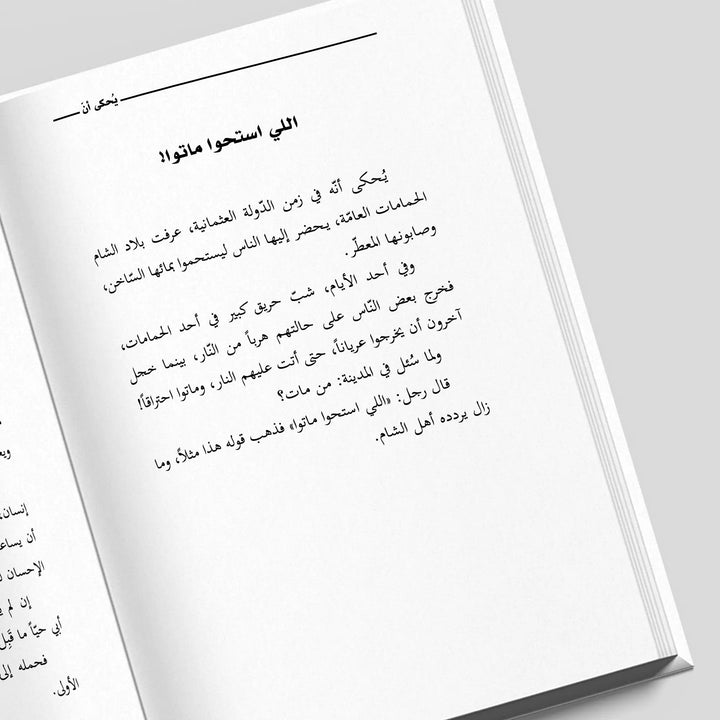 يُحكى أن
اللي استحوا ماتوا!
يُحكى أنّه في زمن الدّولة العثمانية، عرفت بلاد الشام
الحمامات العامّة، يحضر إليها الناس ليستحموا بمائها السّاخن،
وصابونها المعطّر.
وفي أحد الأيام، شبّ حريق كبير في أحد الحمامات،
فخرج بعض النّاس على حالتهم هرباً من النّار، بينما خجل
آخرون أن يخرجوا عرياناً، حتى أتت عليهم النار، وماتوا احتراقاً!
ولما سُئل في المدينة: من مات؟
قال رجل: «اللي استحوا ماتوا» فذهب قوله هذا مثلاً، وما
زال يردده أهل الشام.
إنسان،
أن يساعد
الإحسان
إن لم
أبي حيّاً ما قَبِل
فحمله إلى
الأولى.